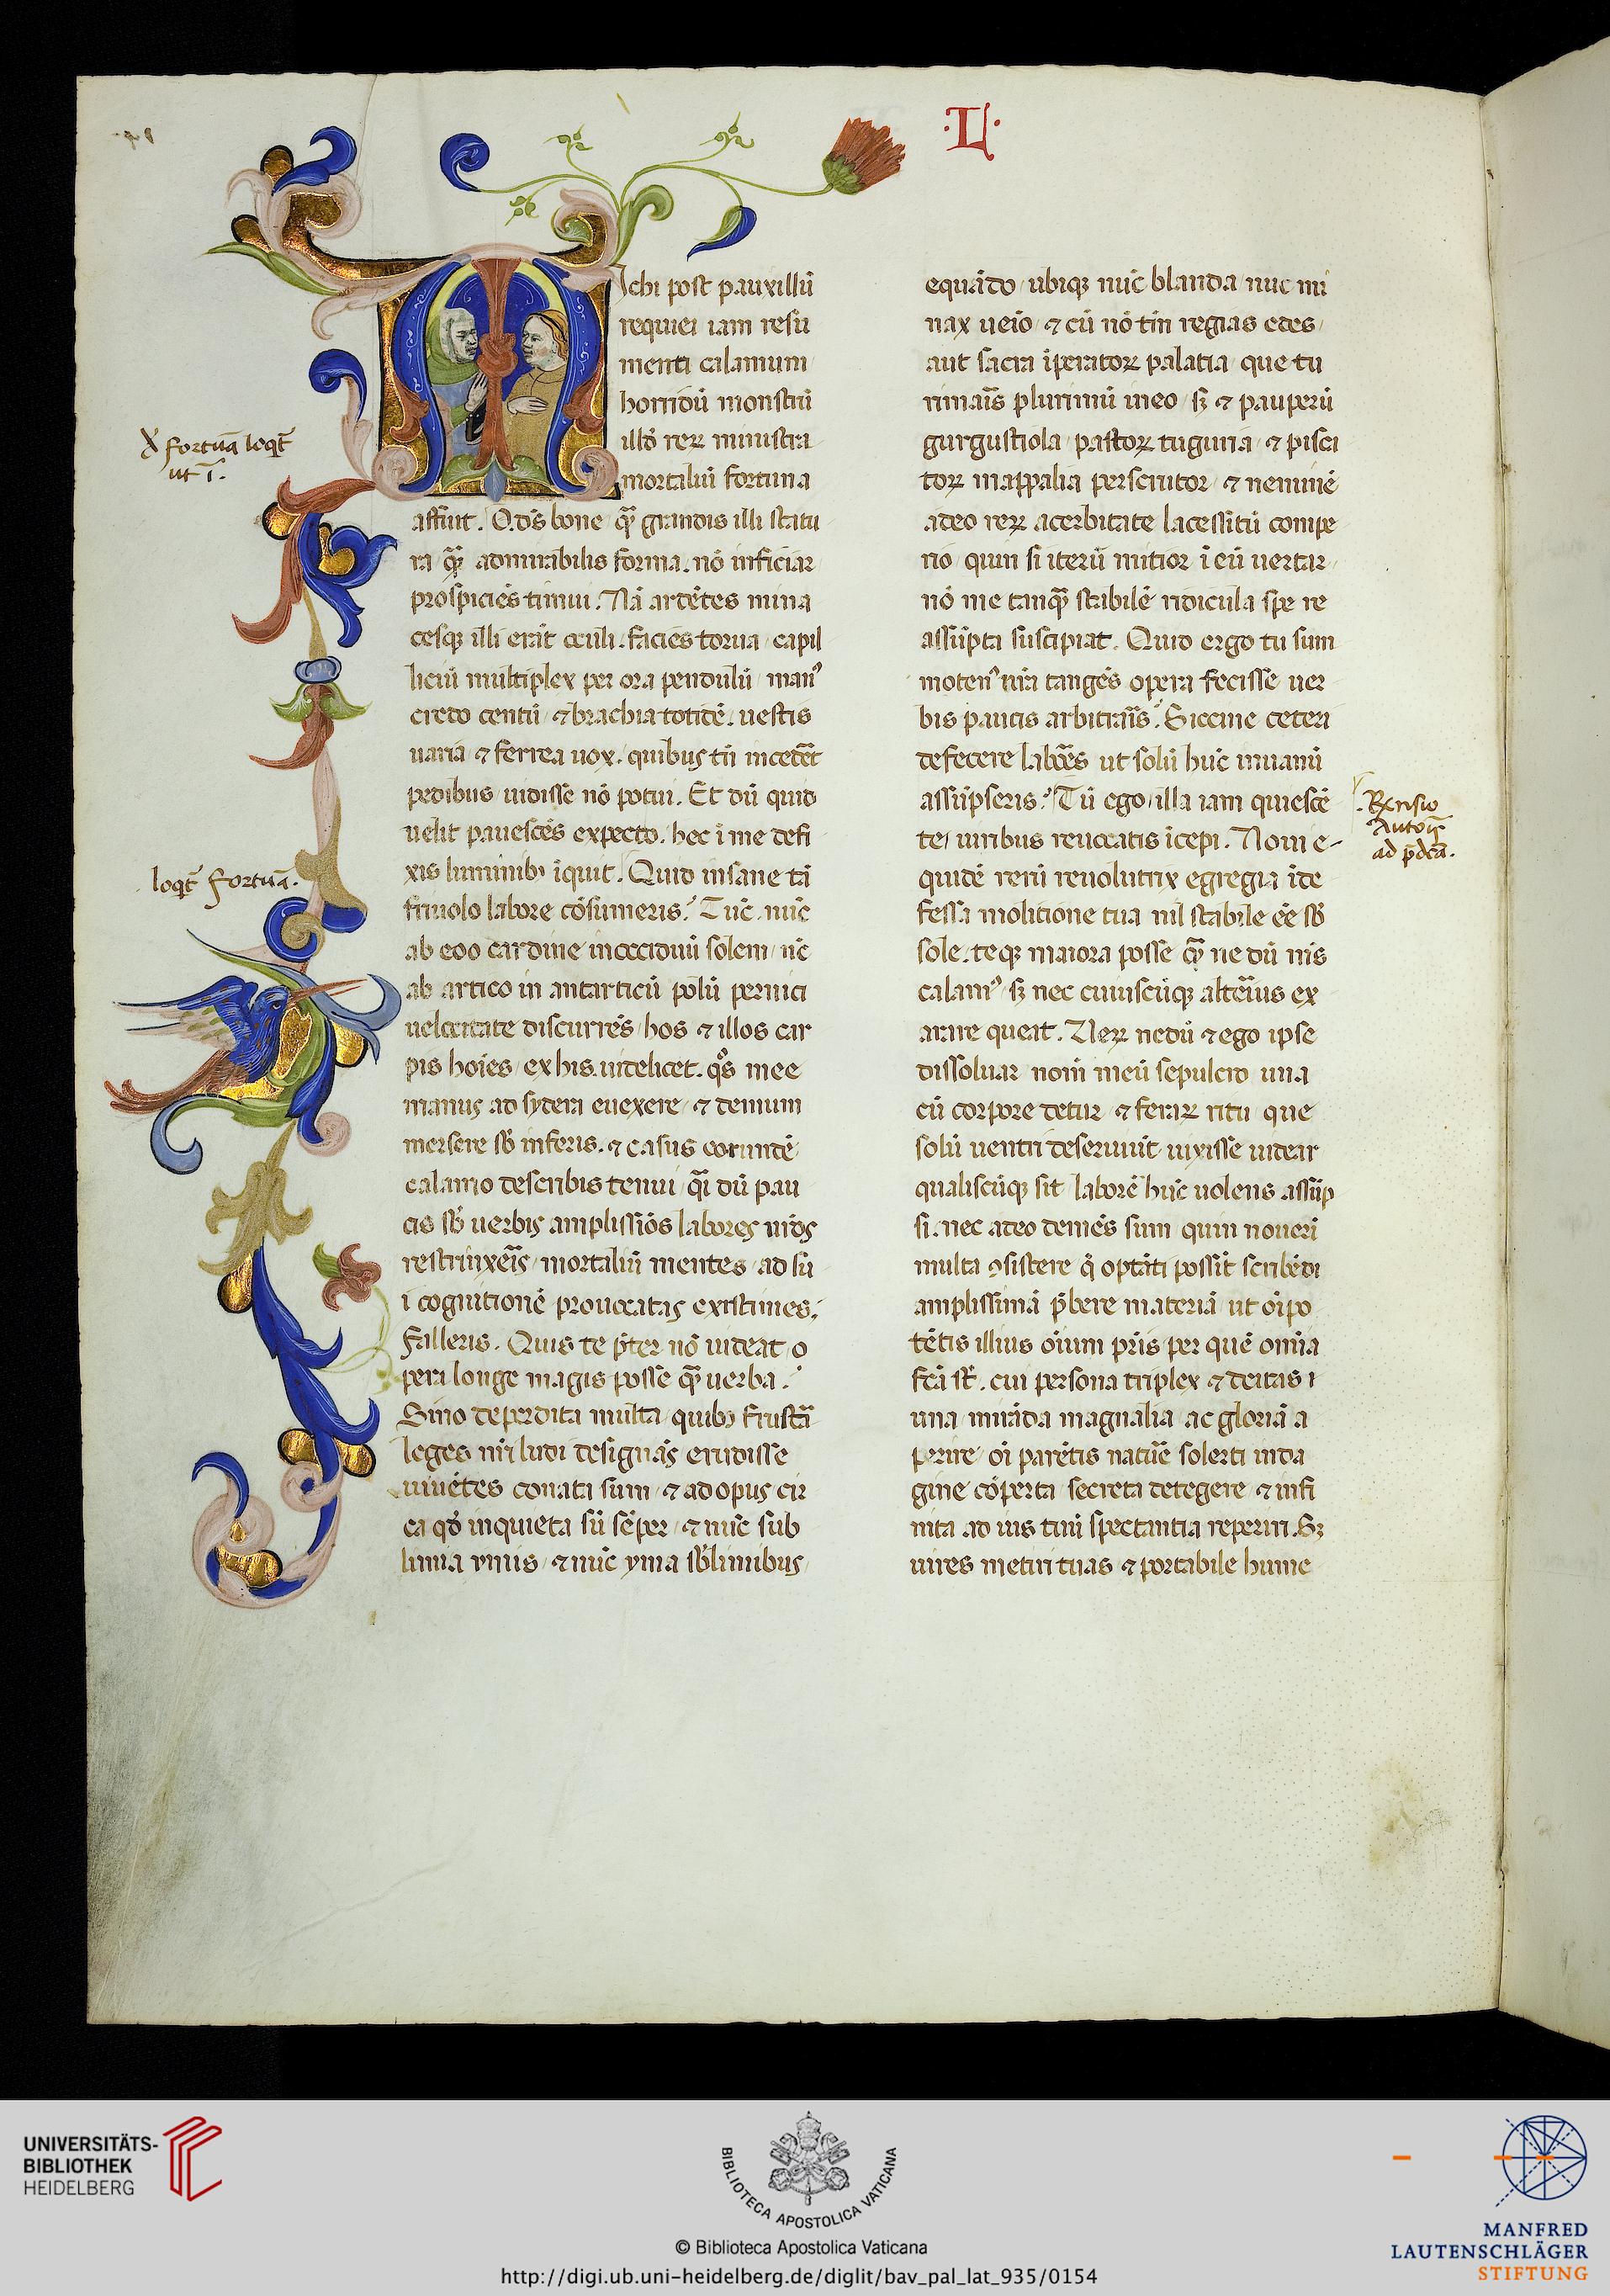 ·L·
Michi post pauxillū
requiei iam resu
menti calamum
horridū monstrū
illd̄ reꝝ ministra
mortaliū fortuna
affuit. O ds̄ bone quā grandis illi statu
ra quā admirabilis forma. nō inficiar
prospiciēs timui. Nā ardētes mina
cesqꝫ illi erāt oculi. facies torua capil
liciū multiplex per ora pendulū manꝰ
credo centū ⁊ brachia totidē. uestis
uaria ⁊ ferrea uox. quibus tn̄ incedēt
pedibus uidisse nō potui. Et dū quid
uelit pauescēs expecto. hec ī me defi
xis luminibꝫ īquit. Quid insane tā
friuolo labore cōsumeris? Tūc nūc
ab eoo cardine in occiduū solem nc̄
ab artico in antarticū polū pernici
uelocitate discurrēs hos ⁊ illos car
pis hoīes ex his uidelicet. qͦs mee
manus ad sydera euexere ⁊ demum
mersere sb̄ inferis. ⁊ casus eorundē
calamo describis tenui qāi dū pau
cis sb̄ uerbis amplissiōs labores nr̄os
restrinxeīs mortaliū mentes ad su
i cognitionē prouocatas existimes.
Falleris. Quis te p̄ter nō uideat o
pera longe magis posse quā uerba.
Sino deperdita multa quibꝫ frustā
leges nr̄i ludi designās erudisse
uiuētes conata sum ⁊ ad opus cir
ca qd̄ inquieta sū sēper ⁊ nūc sub
limia ymis ⁊ nūc yma sb̄limibus
equādo ubiqꝫ nūc blanda nūc mi
nax ueīo ⁊ cū nō tm̄ regias edes
aut sacra īperatoꝝ palatia que tu
rimaīs plurimū ineo sꝫ ⁊ pauperū
gurgustiola pastoꝝ tuguria ⁊ pisca
toꝝ mappalia perscrutor ⁊ neminē
adeo reꝝ acerbitate lacessitū compe
rio quin si iterū mitior ī eū uertar
nō me tanquā stabilē ridicula spe re
assūpta suscipiat. Quid ergo tu sum
motenꝰ nr̄a tangēs opera fecisse uer
bis paucis arbitrāis? Siccine ceteri
defecere labōes ut solū hūc inuanū
assūpseris? Tū ego illa iam quiescē
te uiribus reuocatis īcepi. Noui e-
quidē rerū reuolutrix egregia īde
fessa molitione tua nil stabile eē sb̄
sole. teqꝫ maiora posse quā nedū nr̄is
calamꝰ sꝫ nec cuiuscūqꝫ alteīus ex
arare queat. Ueꝝ nedū ⁊ ego ipse
dissoluar nom̄ meū sepulcro una
cū corpore detur ⁊ feraꝝ ritu que
solū uentri deseruiūt uixisse uidear
qualiscūqꝫ sit laborē hūc uolens assūp
si. nec adeo demēs sum quin nouerī
multa ꝯsistere q̄ optāti possīt scribēdi
amplissimā p̄bere materiā ut oīpo
tētis illius oīum pr̄is per quē omīa
fcā st̄. cui persona triplex ⁊ deitas ī
una mirāda magnalia ac gloriā a
perire oī parētis natūe solerti inda
gine cōperta secreta detegere ⁊ infi
nita ad uis tuū spectantia reperiri. Sꝫ
uires metiri tuas ⁊ portabile hume
fortuā loqt̄
ut ī.
loqt̄ fortuā.
Rensio
Autoīs
ad p̄dcā.
UNIVERSITÄTS-
BIBLIOTHEK
HEIDELBERG
BIBLIOTECA APOSTOLICA VATICANA
© Biblioteca Apostolica Vaticana
http://digi.ub.uni-heidelberg.de/diglit/bav_pal_lat_935/0154
MANFRED
LAUTENSCHLÄGER
STIFTUNG